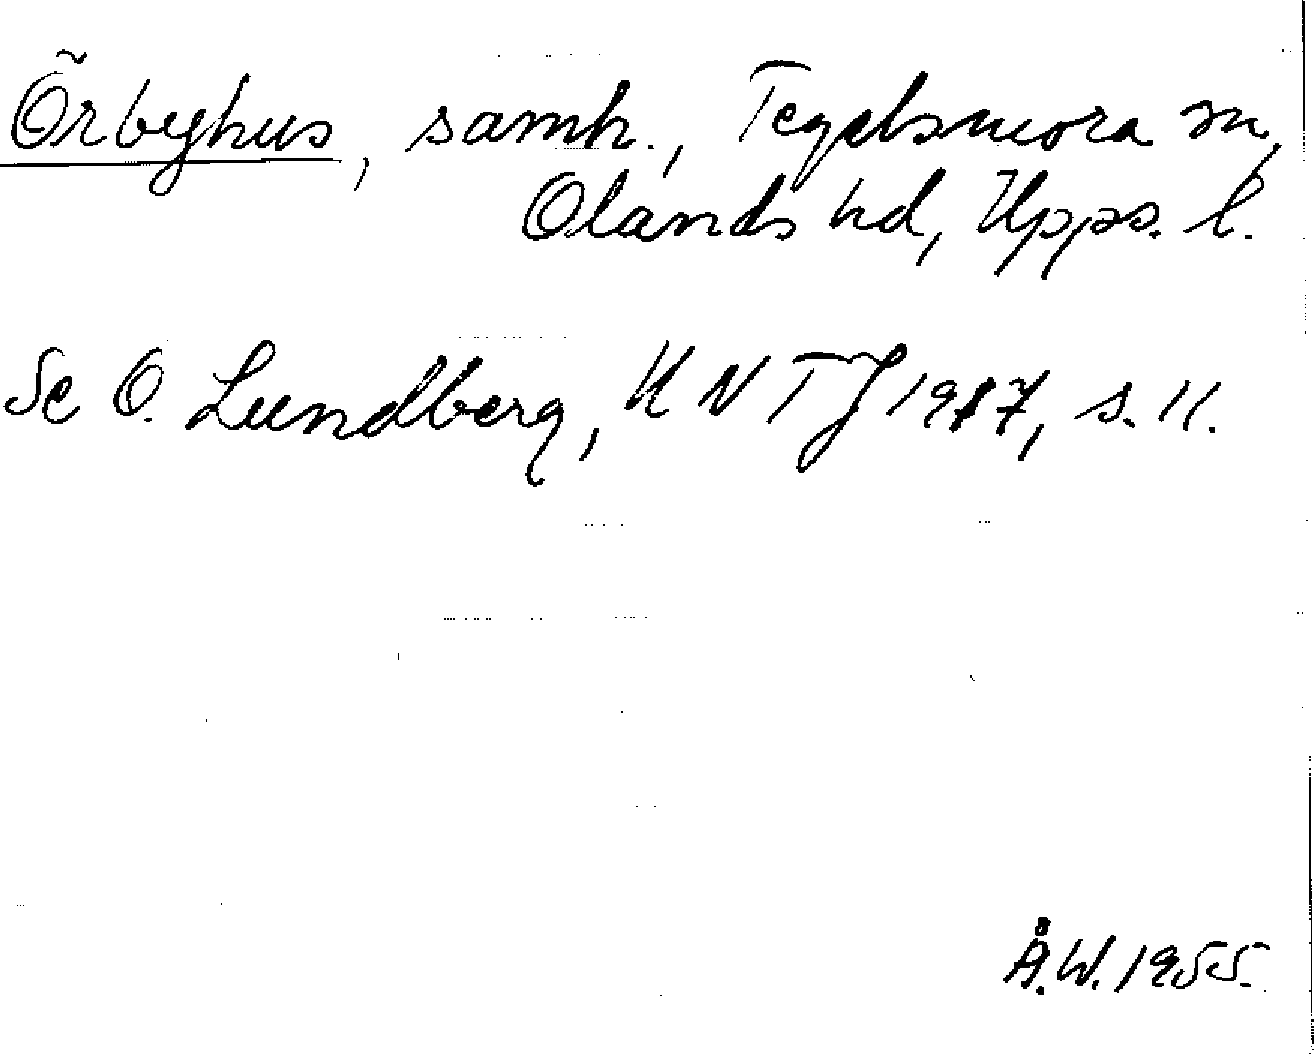 Örbyhus, samh., Tegelsmora sn,
Olands hd, Upps. l.
Se O. Lundberg, UNTJ 1917, s. 11.
Å.W. 1955.